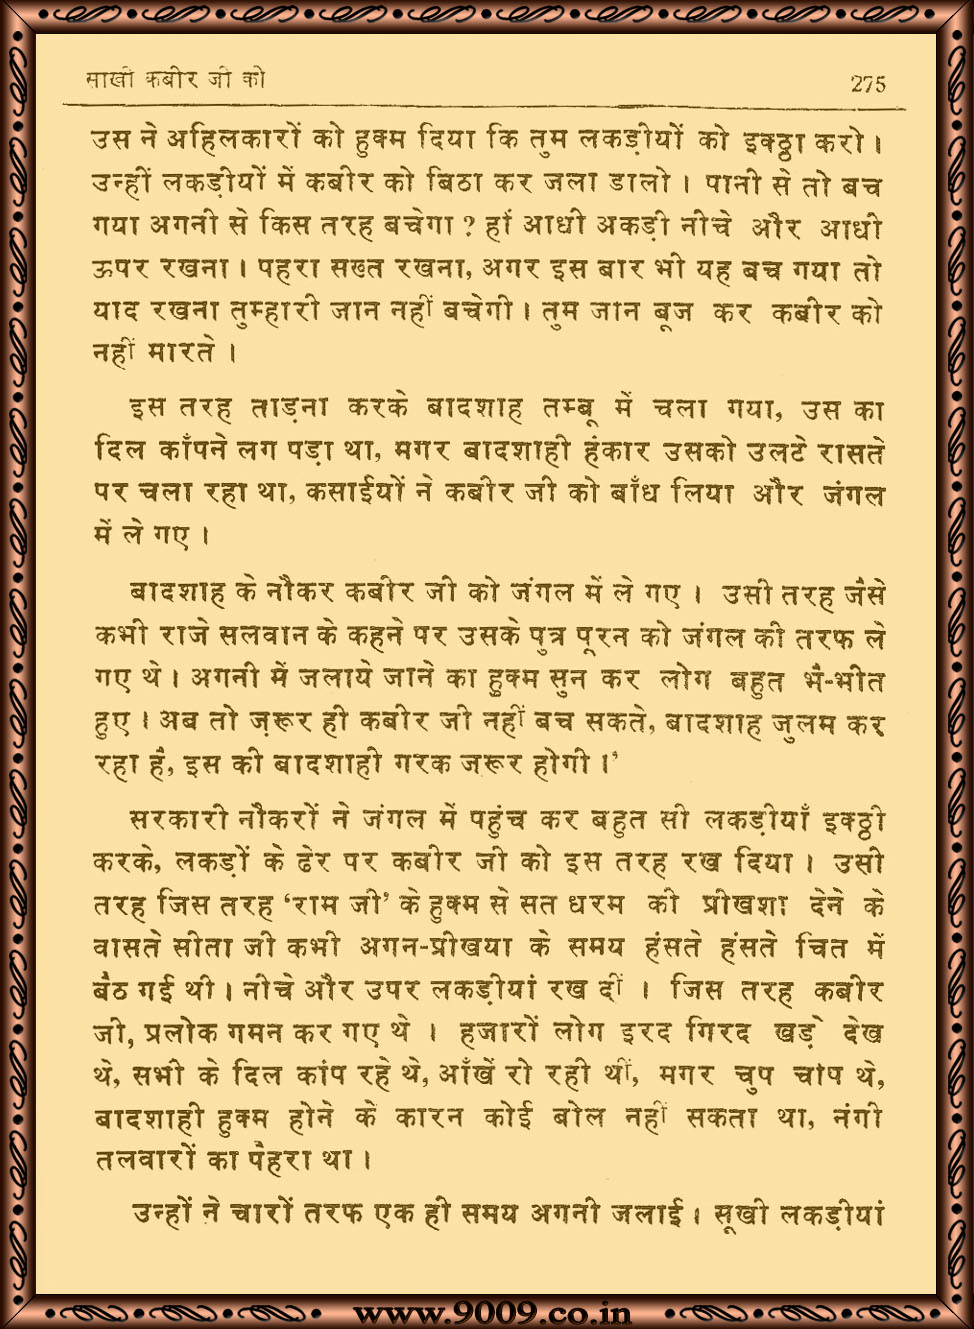 साखी कबीर जी को 275
उस ने अहिलकारों को हुक्म दिया कि तुम लकड़ीयों को इक्ठ्ठा करो ।
उन्हीं लकड़ीयों में कबीर को बिठा कर जला डालो । पानी से तो बच
गया अगनी से किस तरह बचेगा ? हां आधी अकड़ी नीचे और आधी
ऊपर रखना । पहरा सख्त रखना, अगर इस बार भी यह बच गया तो
याद रखना तुम्हारी जान नहीं बचेगी । तुम जान बूज कर कबीर को
नहीं मारते ।
इस तरह ताड़ना करके बादशाह तम्बू में चला गया, उस का
दिल काँपने लग पड़ा था, मगर बादशाही हंकार उसको उलटे रासते
पर चला रहा था, कसाईयों ने कबीर जी को बाँध लिया और जंगल
में ले गए ।
बादशाह के नौकर कबीर जी को जंगल में ले गए । उसी तरह जैसे
कभी राजे सलवान के कहने पर उसके पुत्र पूरन को जंगल की तरफ ले
गए थे । अगनी में जलाये जाने का हुक्म सुन कर लोग बहुत भै-भीत
हुए । अब तो ज़रूर ही कबीर जी नहीं बच सकते, बादशाह जुलम कर
रहा है, इस की बादशाही गरक जरूर होगी ।’
सरकारी नौकरों ने जंगल में पहुंच कर बहुत सी लकड़ीयाँ इक्ठ्ठी
करके, लकड़ों के ढेर पर कबीर जी को इस तरह रख दिया । उसी
तरह जिस तरह ‘राम जी’ के हुक्म से सत धरम की प्रीखशा देने के
वासते सीता जी कभी अगन-प्रीखया के समय हंसते हंसते चित में
बैठ गई थी । नीचे और उपर लकड़ीयां रख दीं । जिस तरह कबीर
जी, प्रलोक गमन कर गए थे । हजारों लोग इरद गिरद खड़े देख
थे, सभी के दिल कांप रहे थे, आँखें रो रही थीं, मगर चुप चाप थे,
बादशाही हुक्म होने के कारन कोई बोल नहीं सकता था, नंगी
तलवारों का पैहरा था ।
उन्हों ने चारों तरफ एक ही समय अगनी जलाई । सूखी लकड़ीयां
www.9009.co.in